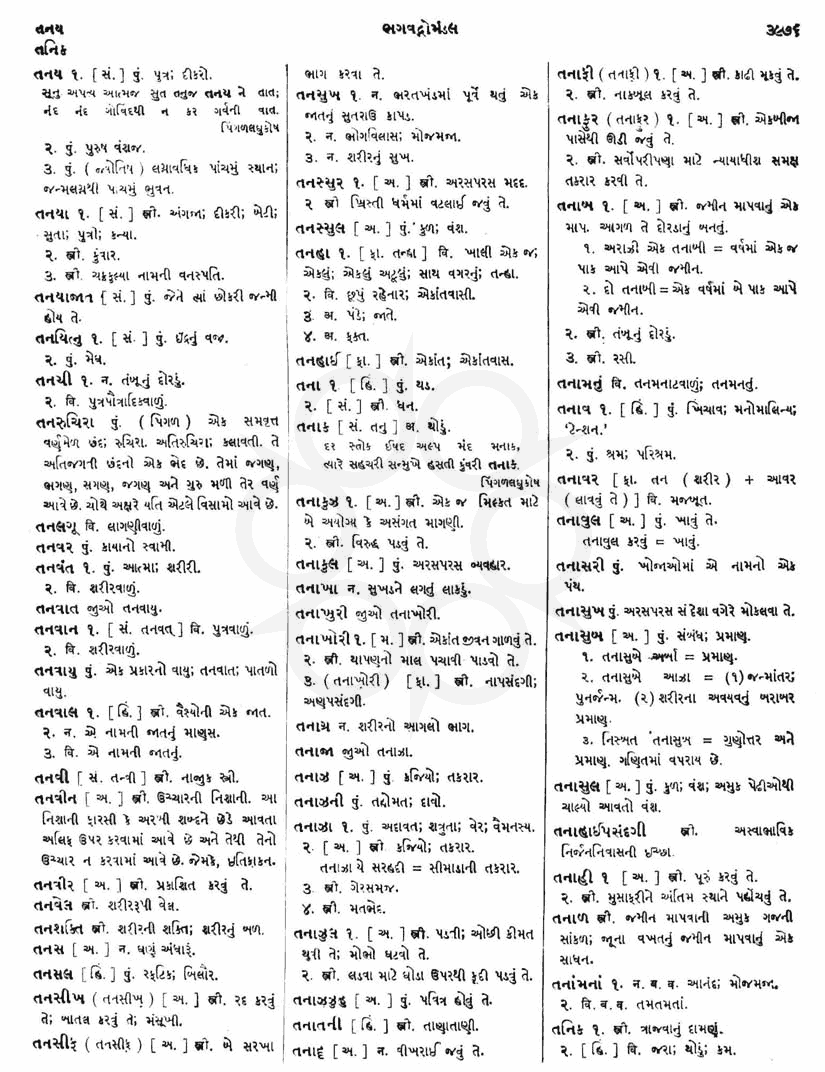 તનય
તનિક
ભગવદ્ગોમંડલ
૩૯૭૬
તનય ૧. [ સં. ] પું. પુત્ર; દીકરો.
સૂનુ અપત્ય આત્મજ સુત તનુજ તનય ને તાત;
નંદ નંદ ગોવિંદથી ન કર ગર્વની વાત.
પિંગળલઘુકોષ
૨. પું. પુરુષ વંશજ.
૩. પું. ( જ્યોતિષ ) લગ્નાવધિક પાંચમું સ્થાન;
જન્મલગ્નથી પાંચમું ભુવન.
તનયા ૧. [ સં. ] સ્ત્રી. અંગજા; દીકરી; બેટી;
સુતા; પુત્રી; કન્યા.
૨. સ્ત્રી. કુંવાર.
૩. સ્ત્રી. ચક્રકુલ્યા નામની વનસ્પતિ.
તનયાજાત [ સં. ] પું. જેને ત્યાં છોકરી જન્મી
હોય તે.
તનયિત્નુ ૧. [ સં. ] પું. ઇંદ્રનું વજ્ર.
૨. પું. મેઘ.
તનચી ૧. ન. તંબૂનું દોરડું.
૨. વિ. પુત્રપૌત્રાદિકવાળું.
તનરુચિરા પું. ( પિંગળ ) એક સમવૃત્ત
વર્ણમેળ છંદ; રુચિરા. અતિરુચિરા; કલાવતી. તે
અતિજગતી છંદનો એક ભેદ છે. તેમાં જગણ,
ભગણ, સગણ, જગણ અને ગુરુ મળી તેર વર્ણ
આવે છે. ચોથે અક્ષરે યતિ એટલે વિસામો આવે છે.
તનલગૂ વિ. લાગણીવાળું.
તનવર પું. કાયાનો સ્વામી.
તનવંત ૧. પું. આત્મા; શરીરી.
૨. વિ. શરીરવાળું.
તનવાત જુઓ તનવાયુ.
તનવાન ૧. [ સં. તનવત્ ] વિ. પુત્રવાળું.
૨. વિ. શરીરવાળું.
તનવાયુ પું. એક પ્રકારનો વાયુ; તનવાત; પાતળો
વાયુ.
તનવાલ ૧. [ હિં. ] સ્ત્રી. વૈશ્યોની એક જાત.
૨. ન. એ નામની જાતનું માણસ.
૩. વિ. એ નામની જાતનું.
તનવી [ સં. તન્વી ] સ્ત્રી. નાજુક સ્ત્રી.
તનવીન [ અ. ] પું. ઉચ્ચારની નિશાની. આ
નિશાની ફારસી કે અરબી શબ્દને છેડે આવતા
અલિફ ઉપર કરવામાં આવે છે અને તેથી તેનો
ઉચ્ચાર ન કરવામાં આવે છે. જેમકે, ઇત્તિફાકન.
તનવીર [ અ. ] સ્ત્રી. પ્રકાશિત કરવું તે.
તનવેલ સ્ત્રી. શરીરરૂપી વેલ.
તનશક્તિ સ્ત્રી. શરીરની શક્તિ; શરીરનું બળ.
તનસ [ અ. ] ન. ઘાટું અંધારૂં.
તનસલ [ હિં. ] પું. સ્ફટિક; બિલોર.
તનસીખ ( તનસીખ઼ ) [ અ. ] સ્ત્રી. રદ કરવું
તે; બાતલ કરવું તે; મંસૂખી.
તનસીફ ( તનસીફ઼ ) [ અ. ] સ્ત્રી. બે સરખા
ભાગ કરવા તે.
તનસુખ ૧. ન. ભરતખંડમાં પૂર્વે થતું એક
જાતનું સુતરાઉ કાપડ.
૨. ન. ભોગવિલાસ; મોજમજા.
૩. ન. શરીરનું સુખ.
તનસ્સુર ૧. [ અ. ] સ્ત્રી. અરસપરસ મદદ.
૨ સ્ત્રી ખ્રિસ્તી ધર્મમાં વટલાઈ જવું તે.
તનસ્સુલ [ અ. ] પું. કુળ; વંશ.
તનહા ૧. [ ફા. તન્હા ] વિ. ખાલી એક જ;
એકલું; એકલું અટૂલું; સાથ વગરનું; તન્હા.
૨. વિ. છૂપું રહેનાર; એકાંતવાસી.
૩. અ. પંડે; જાતે.
૪. અ. ફક્ત.
તનહાઈ [ ફા. ] સ્ત્રી. એકાંત; એકાંતવાસ.
તના ૧. [ હિં. ] પું. થડ.
૨. [ સં. ] સ્ત્રી. ધન.
તનાક [ સં. તનુ ] અ. થોડું.
દર સ્તોક ઈષદ અલ્પ મંદ મનાક,
ત્યારે સહચરી સન્મુખે હસતી કુંવરી તનાક.
પિંગળલઘુકોષ
તનાકુઝ ૧. [ અ. ] સ્ત્રી. એક જ મિલ્કત માટે
બે અયોગ્ય કે અસંગત માગણી.
૨. સ્ત્રી. વિરુદ્ધ પડવું તે.
તનાકુલ [ અ. ] પું. અરસપરસ વ્યવહાર.
તનાખા ન. સુખડને લગતું લાકડું.
તનાખુરી જુઓ તનાખોરી.
તનાખોરી ૧. [ મ. ] સ્ત્રી. એકાંત જીવન ગાળવું તે.
૨. સ્ત્રી. થાપણનો માલ પચાવી પાડવો તે.
૩. ( તનાખ઼ોરી ) [ ફા. ] સ્ત્રી. નાપસંદગી;
અણપસંદગી.
તનાગ્ર ન. શરીરનો આગલો ભાગ.
તનાજા જુઓ તનાઝા.
તનાઝ [ અ. ] પું. કજિયો; તકરાર.
તનાઝની પું. તહોમત; દાવો.
તનાઝા ૧. પું. અદાવત; શત્રુતા; વેર; વૈમનસ્ય.
૨. [ અ. ] સ્ત્રી. કજિયો; તકરાર.
તનાઝા યે સરહદી = સીમાડાની તકરાર.
૩. સ્ત્રી. ગેરસમજ.
૪. સ્ત્રી. મતભેદ.
તનાઝુલ ૧. [ અ. ] સ્ત્રી. પડતી; ઓછી કીમત
થવી તે; મોભો ઘટવો તે.
૨. સ્ત્રી. લડવા માટે ઘોડા ઉપરથી કૂદી પડવું તે.
તનાઝઝુહ [ અ. ] પું. પવિત્ર હોવું તે.
તનાતની [ હિં. ] સ્ત્રી. તાણાતાણી.
તનાદ્ [ અ. ] ન. વીખરાઈ જવું તે.
તનાફી ( તનાફ઼ી ) ૧. [ અ. ] સ્ત્રી. કાઢી મૂકવું તે.
૨. સ્ત્રી. નાકબૂલ કરવું તે.
તનાફુર ( તનાફ઼ુર ) ૧. [ અ. ] સ્ત્રી. એકબીજા
પાસેથી ઊઠી જવું તે.
૨. સ્ત્રી. સર્વોપરીપણા માટે ન્યાયાધીશ સમક્ષ
તકરાર કરવી તે.
તનાબ ૧. [ અ. ] સ્ત્રી. જમીન માપવાનું એક
માપ. આગળ તે દોરડાનું બનતું.
૧. અરાઝી એક તનાબી = વર્ષમાં એક જ
પાક આપે એવી જમીન.
૨. દો તનાબી = એક વર્ષમાં બે પાક આપે
એવી જમીન.
૨. સ્ત્રી. તંબૂનું દોરડું.
૩. સ્ત્રી. રસી.
તનામતું વિ. તનમનાટવાળું; તનમનતું.
તનાવ ૧. [ હિં. ] પું. ખિંચાવ; મનોમાલિન્ય;
'ટેન્શન.'
૨. પું. શ્રમ; પરિશ્રમ.
તનાવર [ ફા. તન ( શરીર ) + આવર
( લાવવું તે ) ] વિ. મજબૂત.
તનાવુલ [ અ. ] પું. ખાવું તે.
તનાવુલ કરવું = ખાવું.
તનાસરી પું. ખોજાઓમાં એ નામનો એક
પંથ.
તનાસુખ પું. અરસપરસ સંદેશા વગેરે મોકલવા તે.
તનાસુબ [ અ. ] પું. સંબંધ; પ્રમાણ.
૧. તનાસુબે અર્બા = પ્રમાણ.
૨. તનાસુબે આઝા = (૧) જન્માંતર;
પુનર્જન્મ. (૨) શરીરના અવયવનું બરાબર
પ્રમાણ.
૩. નિસ્બત તનાસુબ = ગુણોત્તર અને
પ્રમાણ. ગણિતમાં વપરાય છે.
તનાસુલ [ અ. ] પું. કુળ; વંશ; અમુક પેઢીઓથી
ચાલ્યો આવતો વંશ.
તનાહાઈપસંદગી સ્ત્રી. અસ્વાભાવિક
નિર્જનનિવાસની ઇચ્છા.
તનાહી ૧ [ અ. ] સ્ત્રી. પૂરું કરવું તે.
૨. સ્ત્રી. મુસાફરીને અંતિમ સ્થાને પહોંચવું તે.
તનાળ સ્ત્રી. જમીન માપવાની અમુક ગજની
સાંકળ; જૂના વખતનું જમીન માપવાનું એક
સાધન.
તનાંમનાં ૧. ન. બ. વ. આનંદ; મોજમજા.
૨. વિ. બ. વ. તમતમતાં.
તનિક ૧. સ્ત્રી. ત્રાજવાનું દામણું.
૨. [ હિં. ] વિ. જરા; થોડું; કમ.